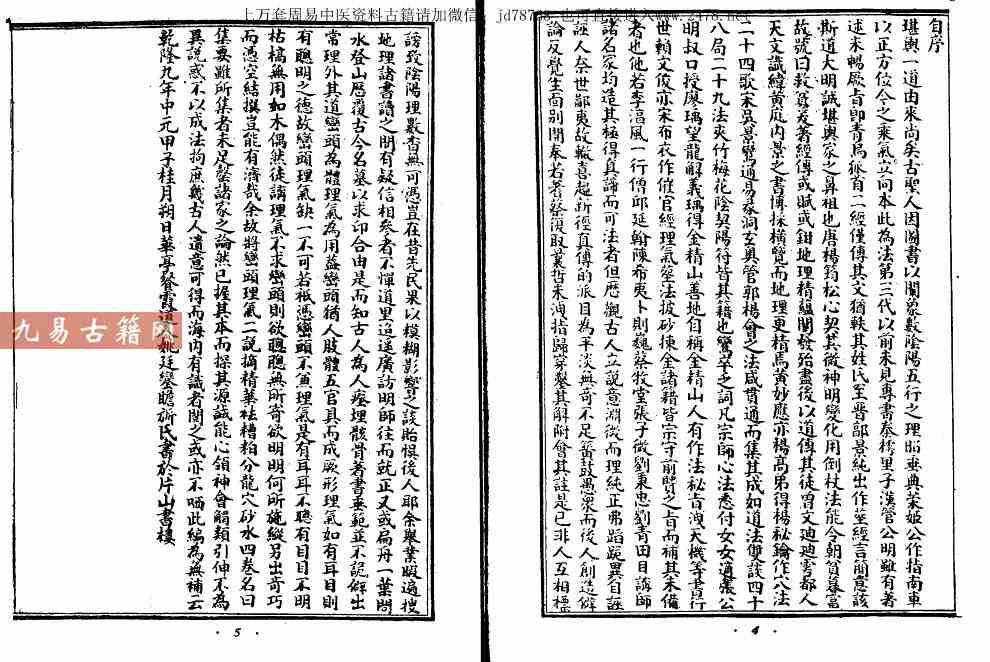 上万套周易中医资料古籍请加微信：jd78758 也可直接进入www.9478.net
自序
堪輿一道由來尚矣古聖人因圖書以闡象數陰陽五行之理昭垂典策姬公作指南車
以正方位令之乘氣立向本此為法第三代以前未見專書秦樗里子漢管公明雖有著
述未暢厥旨卽青烏狐首二經僅傳其文猶軼其姓氏至晉郭景純出作塟經言簡意該
斯道大明誠堪輿家之鼻祖也唐楊筠松心契其微神明變化用倒杖法能令朝貧暮富
故號曰救貧爰著經傳或賦或鉗地理精蘊闡發殆盡後以道傳其徒曾文迪迪雩都人
天文讖緯黃庭內景之書博採橫覽而地理更精馬黃妙應亦楊高弟得楊秘鑰作六法
二十四歌宋吳景鸞通易彖洞玄奥管郭楊曾之法咸貫通而集其成如道法雙談四十
八局二十九法夾竹梅花陰契陽符皆其籍也鸞卒之詞凡宗師心法悉付女女適張公
明叔口授廖瑀望龍解義瑀得金精山善地自稱金精山人有作法秘旨洩天機等書行
世賴文俊亦宋布衣作催官經理氣塟法拔砂揀金諸籍皆宗守前賢之旨而補其未備
者也他若李淳風一行僧邱延翰陳希夷卜則巍蔡牧堂張子微劉秉忠劉青田目講師
諸名家均造其極得真諦而可法者但歷觀古人立說意淵微而理純正弗蹈蹊異自誑
誑人奈世鄙夷故轍喜趨新徑真傳的派目為平淡無奇不足簧鼓愚衆而後人創造僻
論反覺生面別開奉若蓍蔡復取曩哲未洩指歸穿鑿其解附會其註是己非人互相標
謗致陰陽理數杳無可憑豈在昔先民果以模糊影響之談貽悞後人耶余舉業暇遍搜
地理諸書讀之間有疑信相參者不憚道里迢遥廣訪明師往而就正又或扁舟一葉問
水登山歷覆古今名墓以求印合由是而知古人為人瘞埋骸骨著書垂範並不詭僻出
常理外其道巒頭為體理氣為用葢巒頭猶人肢體五官具而成厥形理氣如有耳目則
有聰明之德故巒頭理氣缺一不可若衹憑巒頭不兼理氣是有耳耳不聰有目目不明
枯槁無用如木偶然徒講理氣不求巒頭則欲聰聰無所寄欲明明何所施縱另出奇巧
而憑空結撰豈能有濟哉余故將巒頭理氣二說摘精華袪糟粕分龍穴砂水四卷名曰
集要雖所集者未足罄諸家之論然已握其本而探其源誠能心領神會觸類引伸不為
異說惑不以成法拘庶幾古人遺意可得而海内有識者閱之或亦不哂此編為無補云
乾隆九年中元甲子桂月朔日華亭餐霞道人姚廷鑾瞻旂氏書於片山書樓
九易古籍网
·5·
·4·